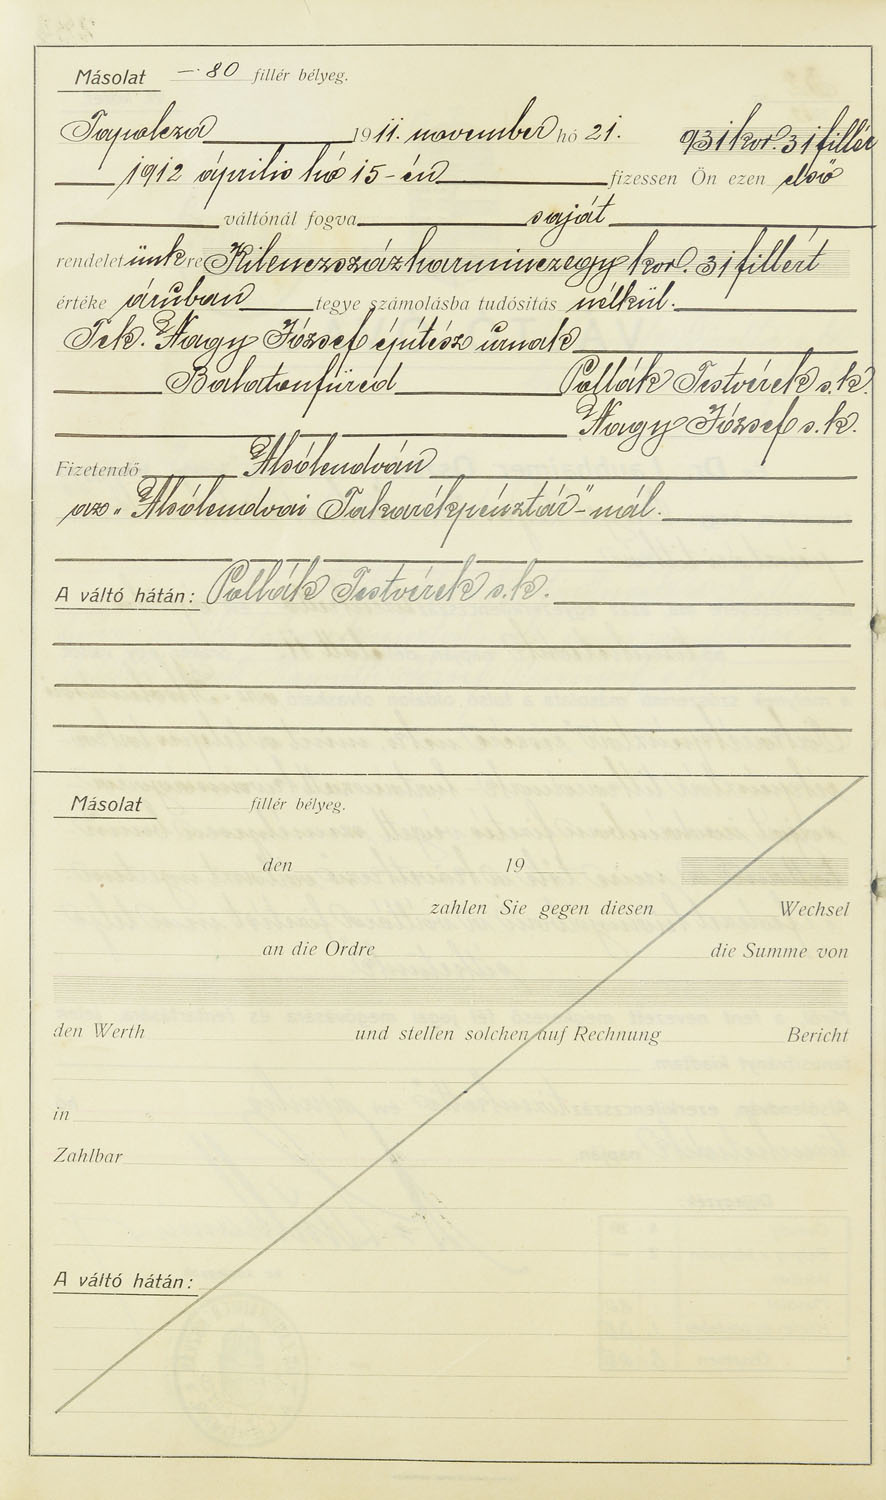 Másolat — 80 fillér bélyeg.
Tapolcza 1911. november hó 21. 931 kor. 31 fillér
1912 április hó 15-én fizessen Ön ezen első
váltónál fogva saját
rendeletünkre Kilenczszázharminczegy kor. 31 fillért
értéke áruban tegye számolásba tudósitás nélkül.
Tek. Nagy József épitész úrnak
Balatonfüred Pollák Testvérek s. k.
Nagy József s. k.
Fizetendő Alsólendván
az „Alsólendvai Takarékpénztár"-nál.
A váltó hátán: Pollák Testvérek s. k.
Másolat fillér bélyeg.
den 19
zahlen Sie gegen diesen Wechsel
an die Ordre die Summe von
den Werth und stellen solchen auf Rechnung Bericht
in
Zahlbar
A váltó hátán: